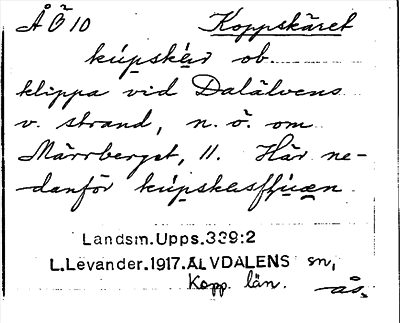 ÅÖ 10 Koppskäret
kúpskär ob.
klippa vid Dalälvens
v. strand, n. ö. om
Märrberget, 11. Här ne-
danför
Landsm.Upps.339:2
L.Levander.1917.ÄLVDALENS sn,
Kopp. län.